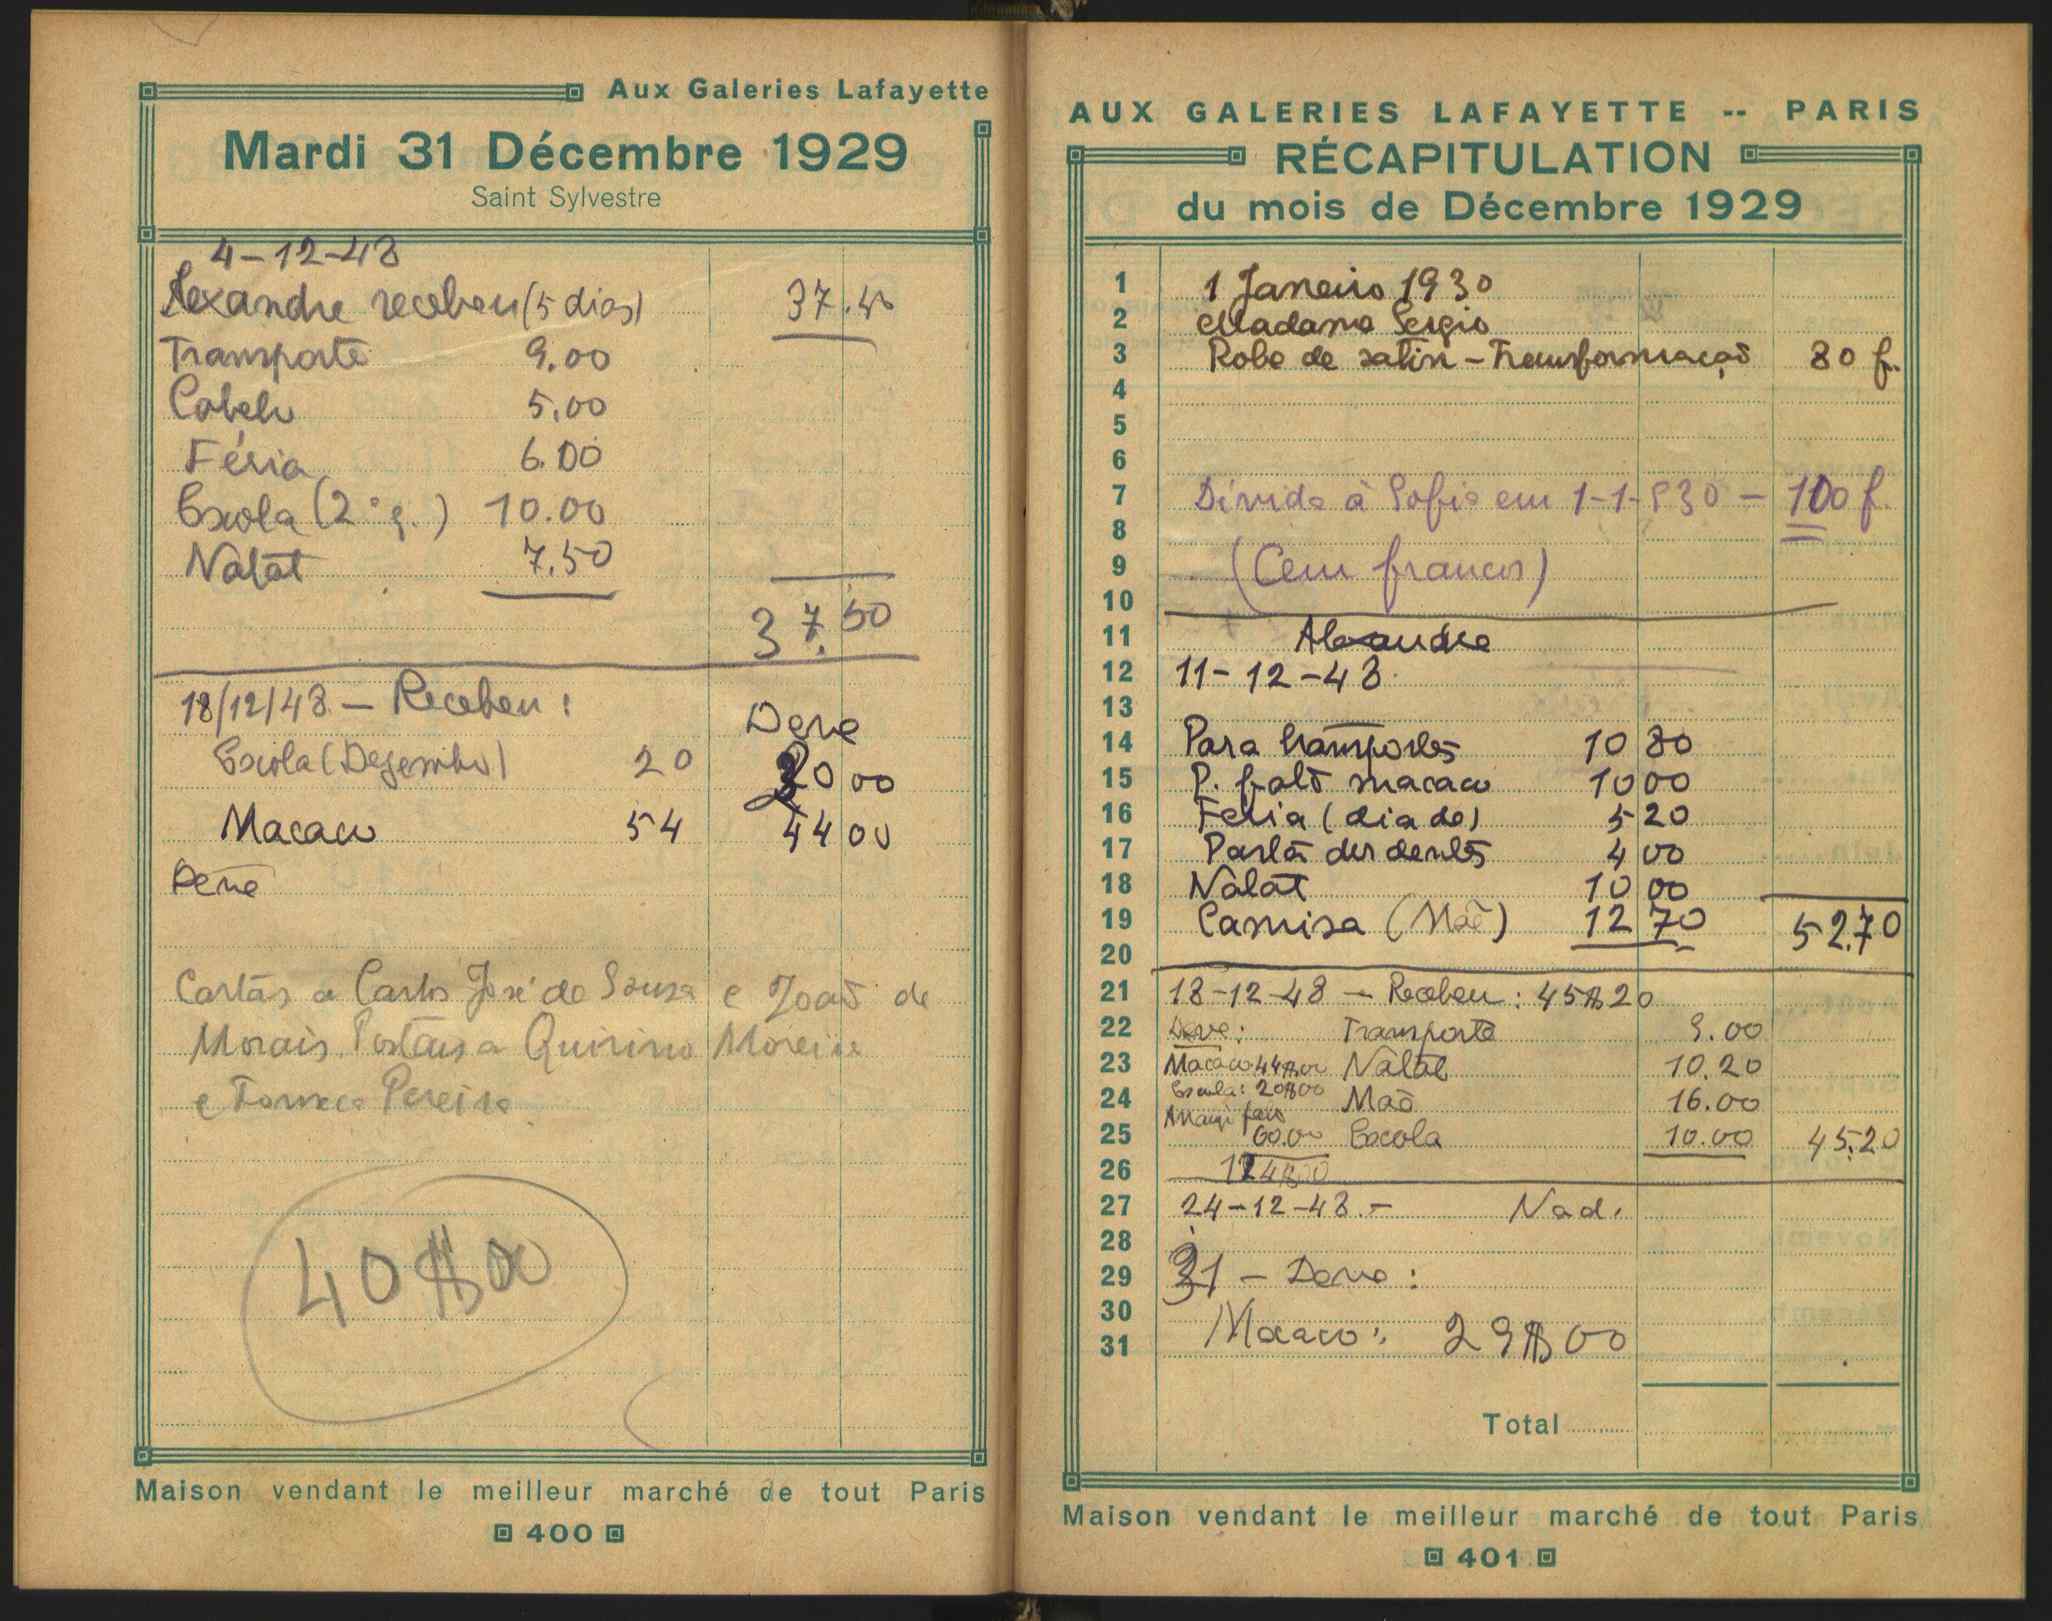 Aux Galeries Lafayette
Mardi 31 Décembre 1929
Saint Sylvestre
4-12-48
Alexandre recebeu (5 dias) 37.50
Transporte 9.00
Cabelo 5.00
Féria 6.00
Escola (2ª q.) 10.00
Natat 7.50
37.50
18/12/48 - Recebeu:
Deve
Escola (Dezembro) 20 20 00
Macaco 54 44 00
Deve
Cartas a Carlos José de Souza e João de
Morais. Postais a Quirino Moreira
e Pereira
40$00
Maison vendant le meilleur marché de tout Paris
400
AUX GALERIES LAFAYETTE -- PARIS
RÉCAPITULATION
du mois de Décembre 1929
1 1 Janeiro 1930
2 Madame Sergio
3 Robe de satin - Transformação 80 f.
4
5
6
7 Dívida à Sofia em 1-1-930 - 100 f.
8
9 (Cem francos)
10
11 Alexandre
12 11-12-48
13
14 Para transportes 10 80
15 P. fato macaco 10 00
16 Feria (dia de) 5 20
17 Pasta dos dentes 4 00
18 Natat 10 00
19 Camisa (Mãe) 12 70 52.70
20
21 18-12-48 - Recebeu: 45$20
22 Deve: Transporte 9.00
23 Macaco 44$00 Natat 10.20
24 Escola: 20$00 Mãe 16.00
fato
25 60.00 Escola 10.00 45.20
26 124$00
27 24-12-48.- Nad.
28
29 31 - Deve:
30
31 Macaco: 29$00
Total
Maison vendant le meilleur marché de tout Paris
401